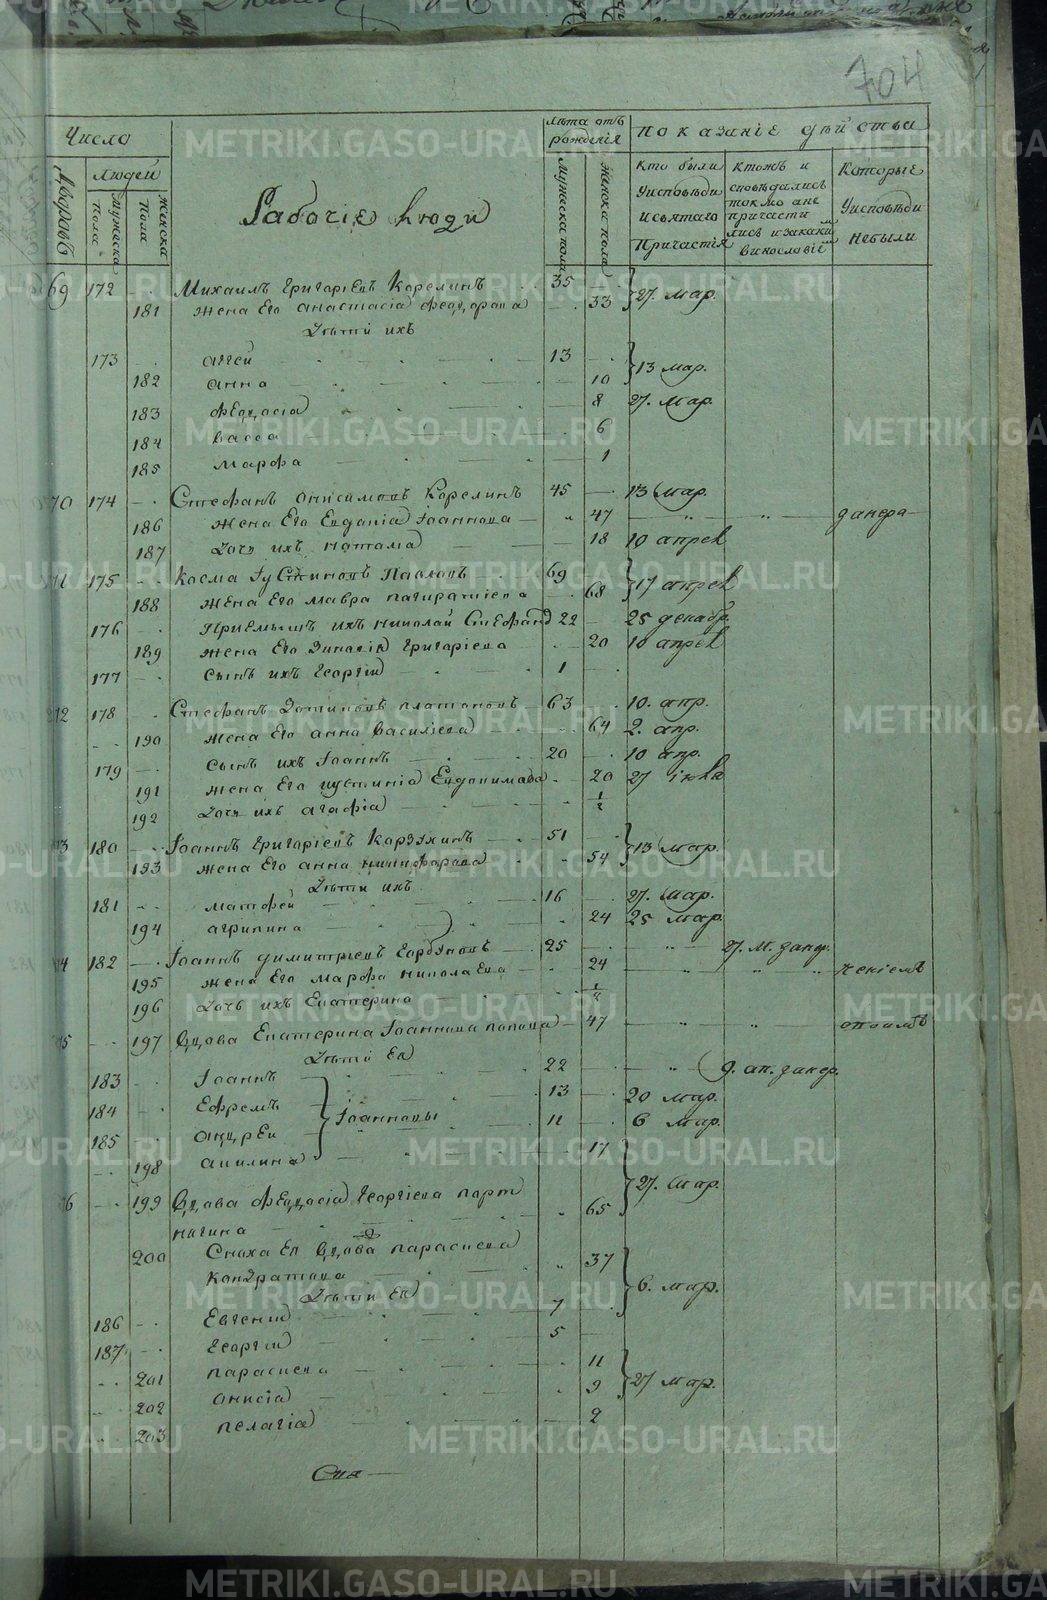 704
Число
Дворовъ
людей
Мужеска Пола
Женска Пола
Рабочіе люди
лѣта отъ рожденія
Мужеска пола
Женска пола
Показаніе дѣйства
Кто были Уисповѣди Исвятаго Причастія
Ктожъ и сповѣдались токмо ане причасти лись изаками винословіе
Которые Уисповѣди Небыли
69 172 Михаилъ Григорьевъ Корелинъ 35 27. Мар.
181 Жена Его Анастасіа Феодорова 33
Дѣти ихъ
173 13 13 Мар.
182 Анна 10
183 Феодосіа 8 27. Мар.
184 Васса 6
185 Марфа 1
70 174 Стефанъ Онисимовъ Корелинъ 45 13 Мар.
186 Жена Его Евдокіа Іоаннова 47
187 Дочь ихъ Наталіа 18 10 апрел
71 175 Косма Іустиновъ Павловъ 69 17 апрел
188 Жена Его Мавра 68
176 Приемышъ ихъ Николай Стефанов 22 25 декабр.
189 Жена Его Григоріева 20 10 апрел
177 Сынъ ихъ Георгій 1
272 178 Стефанъ Платоновъ 63 10. апр.
190 Жена Его Анна Василіева 64 2. апр.
179 Сынъ ихъ Іоаннъ 20 10 апр.
191 Жена Его Иустиніа Евдокимова 20 27
192 Дочь ихъ Агафіа 1/2
73 180 Іоаннъ Григоріевъ Карзухинъ 51 13 Мар.
193 Жена Его Анна Никифорова 54
Дѣти ихъ
181 Матфей 16 27. Мар.
194 Агрипина 24 25 Мар.
74 182 Іоаннъ Димитріевъ Горбуновъ 25 27. М.
195 Жена Его Марфа Николаева 24
196 Дочь ихъ Екатерина
75 197 Вдова Екатерина Іоаннова Попова 47
Дѣти Ея
183 Іоаннъ 22 9. ап.
184 Ефремъ 13 20 Мар.
Іоанновы
185 Андрей 11 6 Мар.
198 Акилина 17 27. Мар.
76 199 Вдова Феодосіа Георгіева Порт
нягина 65
200 Сноха Ея Вдова Параскева 37 6. Мар.
Кондратова
Дѣти Ея
186 Евгений 7
187 Георгій 5
201 Параскева 11 27 Мар.
202 Анисіа 9
203 Пелагіа 2
METRIKI.GASO-URAL.RU